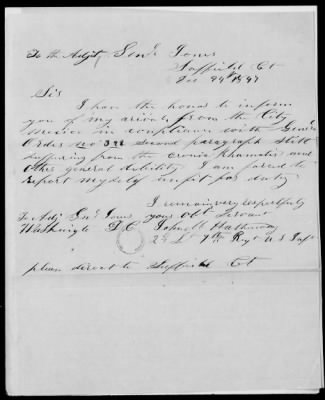 To the Adjt Genl Jones
Suffield Ct
Dec 24th 1847
Sir
I have the honor to inform
you of my arrival from the City
Mexico in compliance with Genl
Order No 328 second paragraph still
suffering from the and
other general debility I am forced to
report myself unfit for duty
I remain very respectfully
To Adj Genl Jones your obt Servant
D.C. John H Hathaway
2d Lt 9th Regt U S Inf
please direct to Suffield Ct